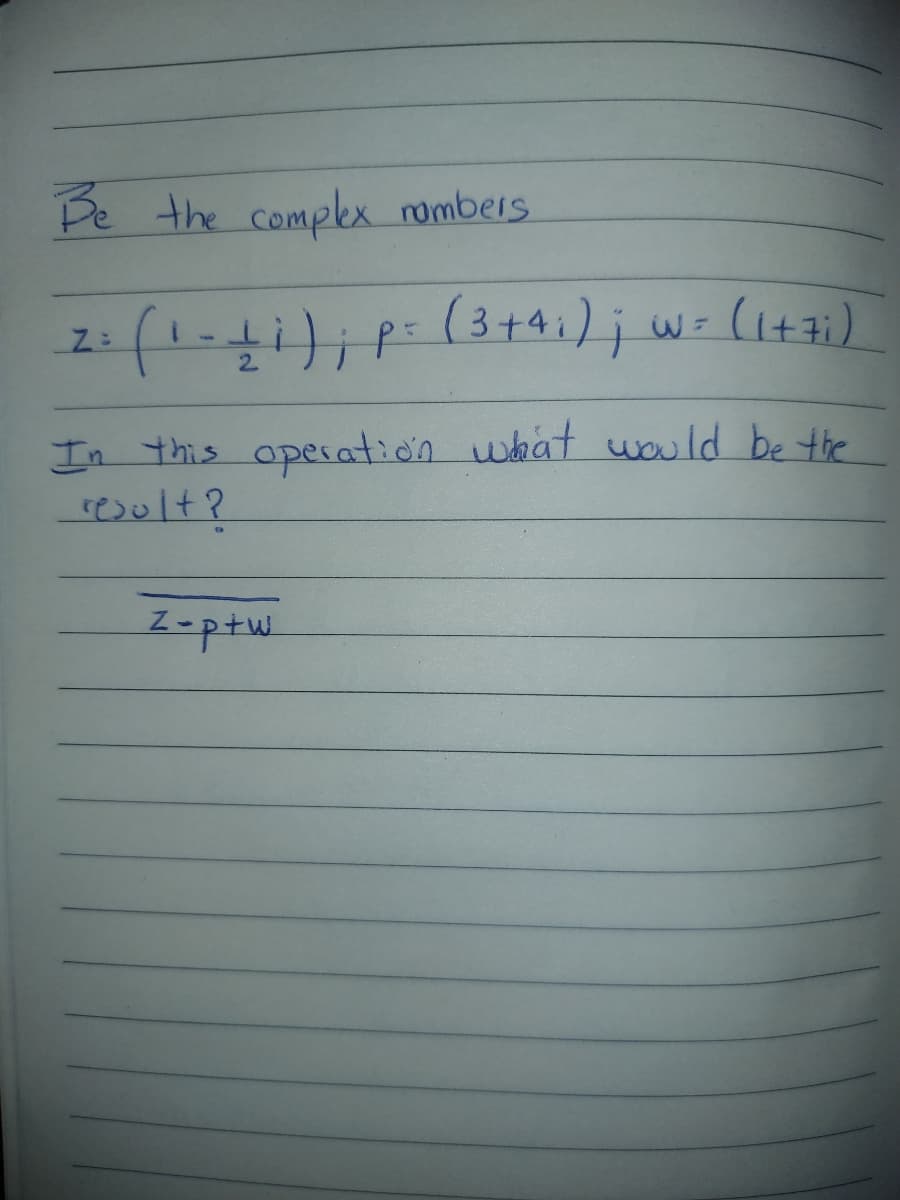 Be the complex nombers
z=(1-1/2i); p=(3+4i); w=(1+7i)
In this operation what would be the
resolt?
z-p+w